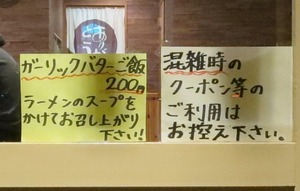 ガーリックバターご飯
200円
ラーメンのスープを
かけてお召し上がり
下さい!
混雑時の
クーポン等の
ご利用は
お控え下さい。